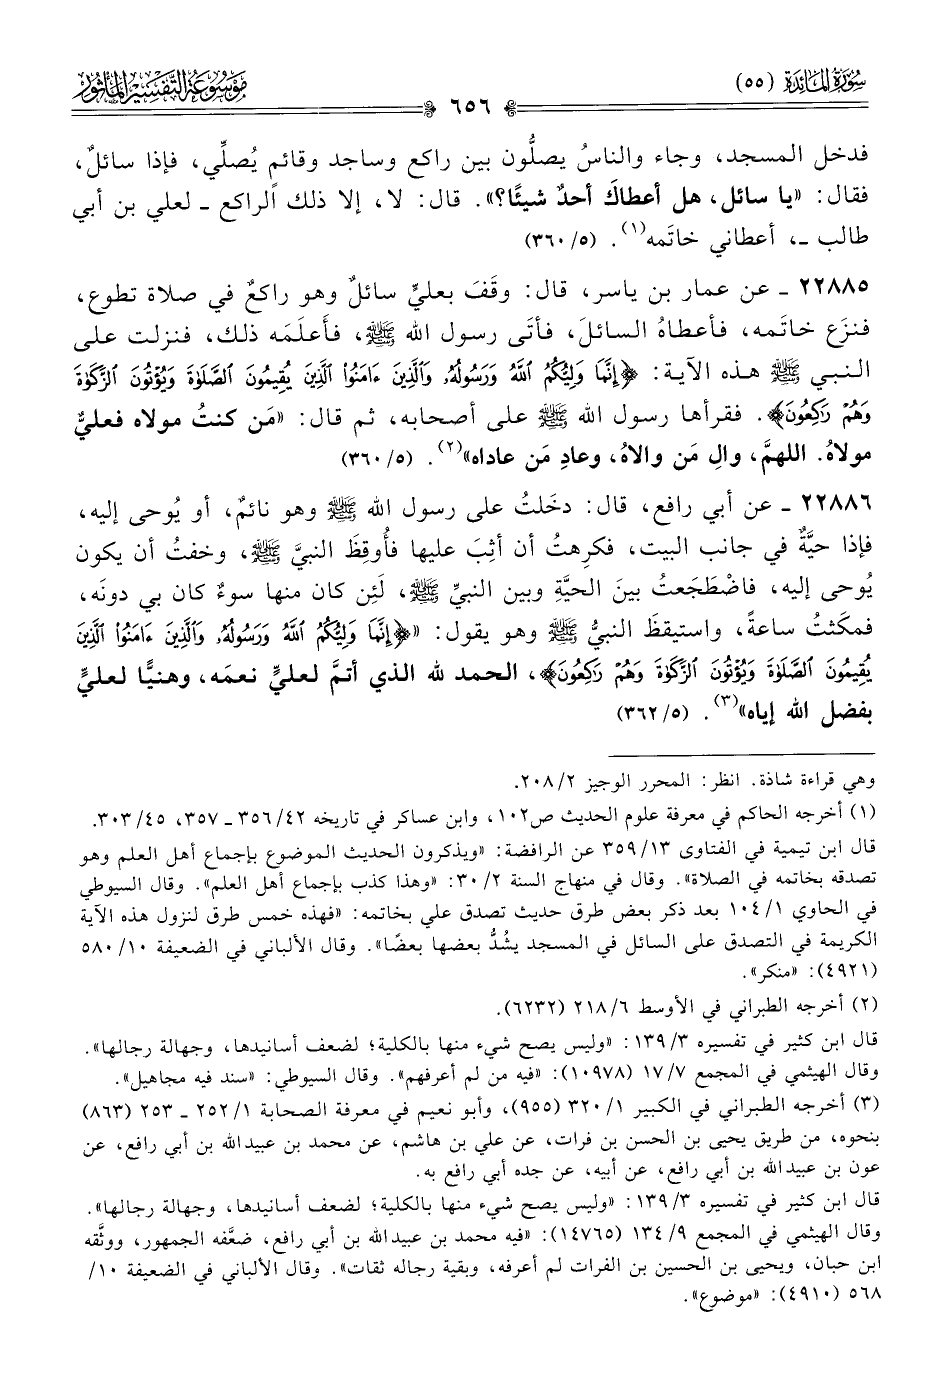 سورة المائدة (٥٥)
٦٥٦
موسوعة التفسير المأثور
فدخل المسجد، وجاء والناسُ يصلُّون بين راكع وساجد وقائم يُصلِّي، فإذا سائلٌ،
فقال: «يا سائل، هل أعطاكَ أحدٌ شيئًا؟». قال: لا، إلا ذلك الراكع ـ لعلي بن أبي
طالب ـ، أعطاني خاتَمه(١). (٣٦٠/٥)
٢٢٨٨٥ ـ عن عمار بن ياسر، قال: وقَفَ بعليٍّ سائلٌ وهو راكعٌ في صلاة تطوع،
فنزَع خاتَمه، فأعطاهُ السائلَ، فأتَى رسول الله ﷺ، فأَعلَمَه ذلك، فنزلت على
النبي ﷺ هذه الآية: ﴿إِنَّمَا وَلِيُّكُمُ ٱللَّهُ وَرَسُولُهُۥ وَٱلَّذِينَ ءَامَنُوا۟ ٱلَّذِينَ يُقِيمُونَ ٱلصَّلَوٰةَ وَيُؤْتُونَ ٱلزَّكَوٰةَ
وَهُمْ رَٰكِعُونَ﴾. فقرأها رسول الله ﷺ على أصحابه، ثم قال: «مَن كنتُ مولاه فعليٌّ
مولاهُ. اللهمَّ، والِ مَن والاهُ، وعادِ مَن عاداه»(٢). (٣٦٠/٥)
٢٢٨٨٦ ـ عن أبي رافع، قال: دخَلتُ على رسول الله ﷺ وهو نائمٌ، أو يُوحى إليه،
فإذا حيَّةٌ في جانب البيت، فكرِهتُ أن أثِبَ عليها فأُوقِظَ النبيَّ ﷺ، وخفتُ أن يكون
يُوحى إليه، فاضْطَجَعتُ بينَ الحيَّةِ وبين النبيِّ ﷺ، لَئِن كان منها سوءٌ كان بي دونَه،
فمكَثتُ ساعةً، واستيقظَ النبيُّ ﷺ وهو يقول: «﴿إِنَّمَا وَلِيُّكُمُ ٱللَّهُ وَرَسُولُهُۥ وَٱلَّذِينَ ءَامَنُوا۟ ٱلَّذِينَ
يُقِيمُونَ ٱلصَّلَوٰةَ وَيُؤْتُونَ ٱلزَّكَوٰةَ وَهُمْ رَٰكِعُونَ﴾، الحمد لله الذي أتمَّ لعليٍّ نعمَه، وهنيًّا لعليٍّ
بفضل الله إياه»(٣). (٣٦٢/٥)
وهي قراءة شاذة. انظر: المحرر الوجيز ٢٠٨/٢.
(١) أخرجه الحاكم في معرفة علوم الحديث ص١٠٢، وابن عساكر في تاريخه ٣٥٦/٤٢ ـ ٣٥٧، ٣٠٣/٤٥.
قال ابن تيمية في الفتاوى ٣٥٩/١٣ عن الرافضة: «ويذكرون الحديث الموضوع بإجماع أهل العلم وهو
تصدقه بخاتمه في الصلاة». وقال في منهاج السنة ٣٠/٢: «وهذا كذب بإجماع أهل العلم». وقال السيوطي
في الحاوي ١٠٤/١ بعد ذكر بعض طرق حديث تصدق علي بخاتمه: «فهذه خمس طرق لنزول هذه الآية
الكريمة في التصدق على السائل في المسجد يشُدُّ بعضها بعضًا». وقال الألباني في الضعيفة ٥٨٠/١٠
(٤٩٢١): «منكر».
(٢) أخرجه الطبراني في الأوسط ٢١٨/٦ (٦٢٣٢).
قال ابن كثير في تفسيره ١٣٩/٣: «وليس يصح شيء منها بالكلية؛ لضعف أسانيدها، وجهالة رجالها».
وقال الهيثمي في المجمع ١٧/٧ (١٠٩٧٨): «فيه من لم أعرفهم». وقال السيوطي: «سند فيه مجاهيل».
(٣) أخرجه الطبراني في الكبير ٣٢٠/١ (٩٥٥)، وأبو نعيم في معرفة الصحابة ٢٥٢/١ ـ ٢٥٣ (٨٦٣)
بنحوه، من طريق يحيى بن الحسن بن فرات، عن علي بن هاشم، عن محمد بن عبيدالله بن أبي رافع، عن
عون بن عبيدالله بن أبي رافع، عن أبيه، عن جده أبي رافع به.
قال ابن كثير في تفسيره ١٣٩/٣: «وليس يصح شيء منها بالكلية؛ لضعف أسانيدها، وجهالة رجالها».
وقال الهيثمي في المجمع ١٣٤/٩ (١٤٧٦٥): «فيه محمد بن عبيدالله بن أبي رافع، ضعَّفه الجمهور، ووثَّقه
ابن حبان، ويحيى بن الحسين بن الفرات لم أعرفه، وبقية رجاله ثقات». وقال الألباني في الضعيفة ١٠/
٥٦٨ (٤٩١٠): «موضوع».